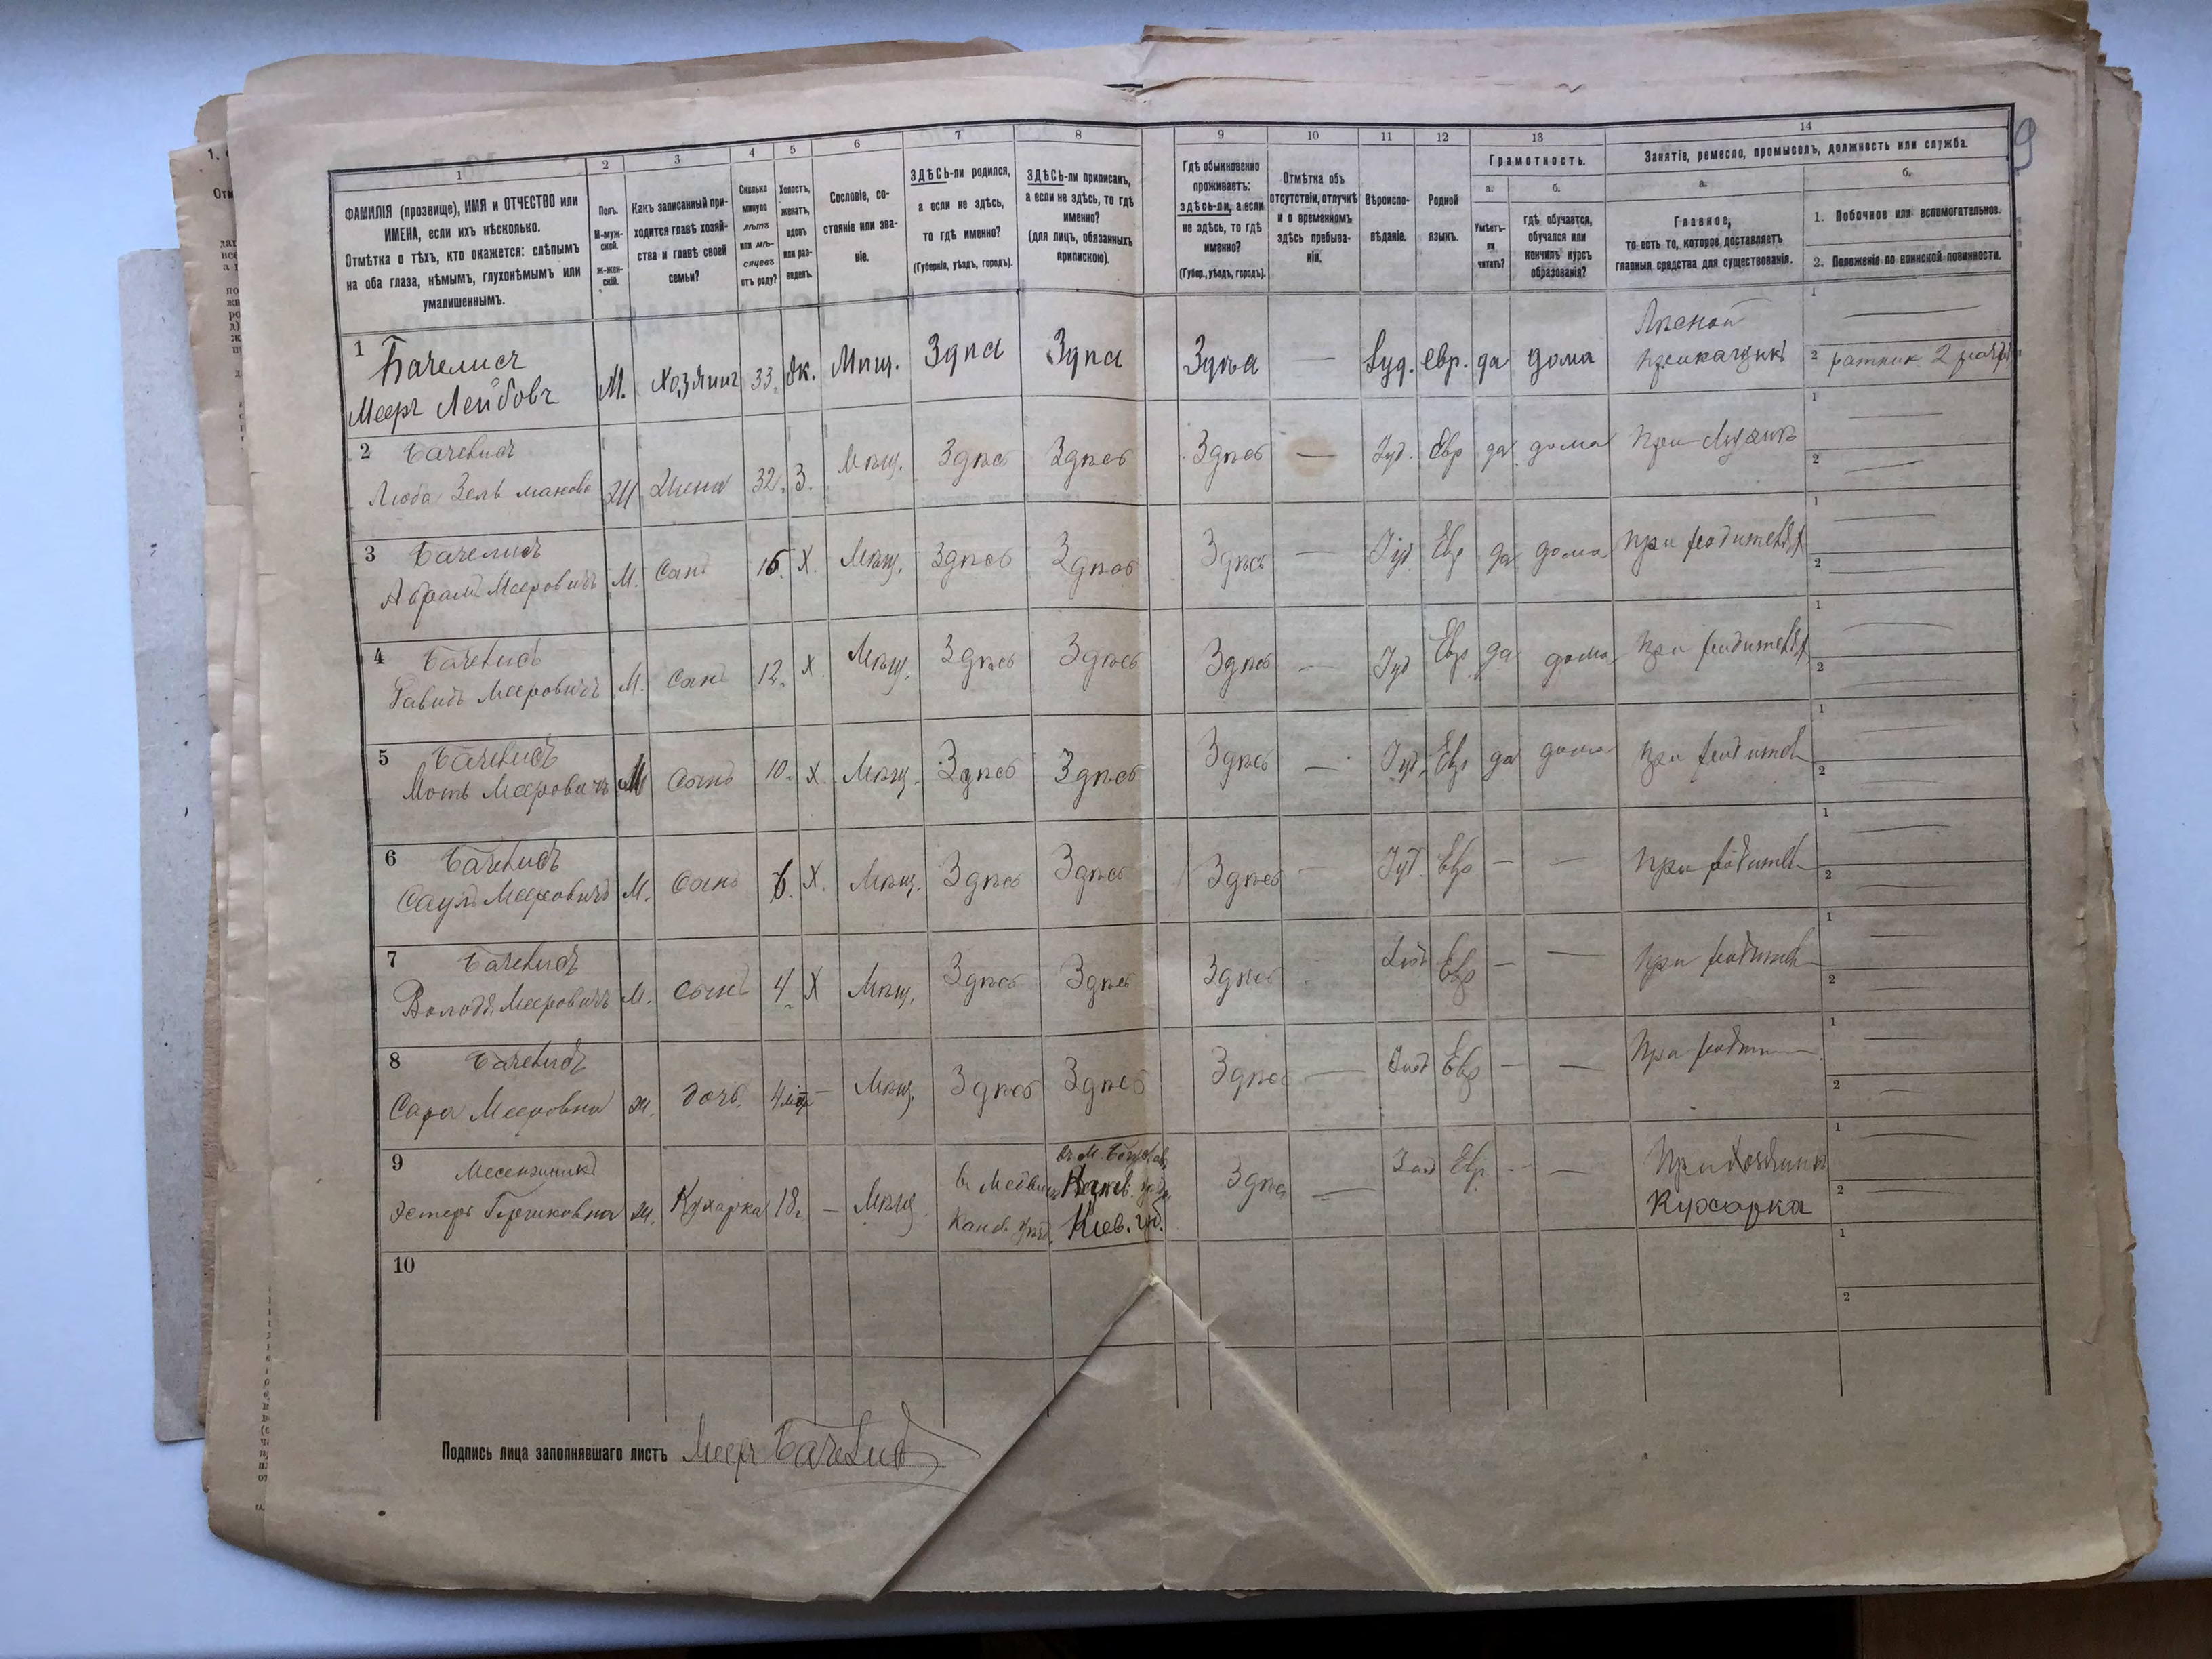 1 2 3 4 5 6 7 8 9 10 11 12 13 14
ФАМИЛІЯ (прозвище), ИМЯ и ОТЧЕСТВО или
ИМЕНА, если ихъ нѣсколько.
Отмѣтка о тѣхъ, кто окажется: слѣпымъ
на оба глаза, нѣмымъ, глухонѣмымъ или
умалишеннымъ.
Полъ.
М-муж-
ской.
Ж-жен-
скій.
Какъ записанный при-
ходится главѣ хозяй-
ства и главѣ своей
семьи?
Сколько
минуло
лѣтъ
или мѣ-
сяцевъ
отъ роду?
Холостъ,
женатъ,
вдовъ
или раз-
веденъ.
Сословіе, со-
стояніе или зва-
ніе.
ЗДѢСЬ-ли родился,
а если не здѣсь,
то гдѣ именно?
(Губернія, уѣздъ, городъ).
ЗДѢСЬ-ли приписанъ,
а если не здѣсь, то гдѣ
именно?
(для лицъ, обязанныхъ
припискою).
Гдѣ обыкновенно
проживаетъ:
здѣсь-ли, а если
не здѣсь, то гдѣ
именно?
(Губер., уѣздъ, городъ).
Отмѣтка объ
отсутствіи, отлучкѣ
и о временномъ
здѣсь пребыва-
ніи.
Вѣроиспо-
вѣданіе.
Родной
языкъ.
Грамотность.
а.
Умѣетъ-
ли
читать?
б.
гдѣ обучается,
обучался или
кончилъ курсъ
образованія?
Занятіе, ремесло, промыселъ, должность или служба.
а.
Главное,
то есть то, которое доставляетъ
главныя средства для существованія.
б.
1. Побочное или вспомогательное.
2. Положеніе по воинской повинности.
1 Бачелисъ М. Хозяинъ 33. Мѣщ. Здѣсь Здѣсь Здѣсь — Іуд. евр. да дома
Мееръ Лейбовъ
Лѣсной
прикащикъ
1 —
2 ратник 2 разр.
2 Бачелисъ Ж Жена 32. З. Мѣщ. Здѣсь Здѣсь Здѣсь — Іуд. Евр да дома при мужѣ
Люба Зельманова
3 Бачелисъ М. Сынъ Х. Мѣщ. Здѣсь Здѣсь Здѣсь — Іуд. Евр да дома при родителях
Абрамъ Мееровичъ
4 Бачелисъ М. Сынъ 12. Х. Мѣщ. Здѣсь Здѣсь Здѣсь — Іуд Евр. да дома при родителях
Давидъ Мееровичъ
5 Бачелисъ М Сынъ 10. Х. Мѣщ. Здѣсь Здѣсь Здѣсь — Іуд. Евр да дома при родител
Моть Мееровичъ
6 Бачелисъ М. Сынъ 6. Х. Мѣщ. Здѣсь Здѣсь Здѣсь — Іуд. Евр — — при родител
Сауль Мееровичъ
7 Бачелисъ М. Сынъ 4 Х Мѣщ. Здѣсь Здѣсь Здѣсь Іуд Евр — — При родител
Володя Мееровичъ
8 Бачелисъ Ж. дочь. — Мѣщ. Здѣсь Здѣсь Здѣсь — Іуд Евр — — При родит
Сара Мееровна
9 Ж. Кухарка 18. — Мѣщ Здѣсь — Іуд Евр. — —
Эстеръ Гершковна
Канев. уѣзд.
Кіев. губ.
При Хозяинѣ
Кухарка
10
Подпись лица заполнявшаго листъ Мееръ Бачелисъ
9